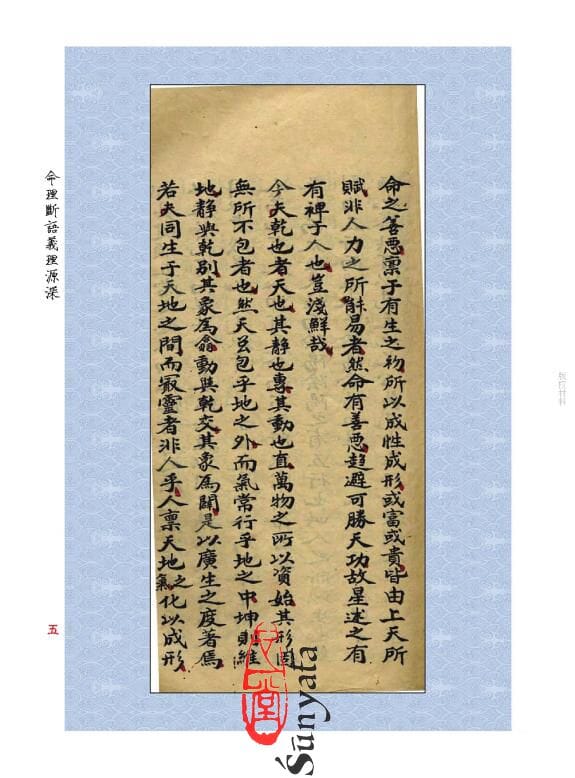 命之善悪禀于有生之初所以成性成形或富或貴皆由上天所
賦非人力之所能易者然命有善悪趨避可勝天功故星述之有
有裨于人也豈淺鮮哉
今夫乾也者天也其静也專其動也直萬物之所以資始其形固
無所不包者也然天包乎地之外而氣常行乎地之中坤則維
地静與乾别其象為翕動與乾交其象為闢是以廣生之度著焉
若夫同生于天地之間而最靈者非人乎人禀天地之氣化以成形
命理斷語義理源深
五
版权材料
Śūnyata